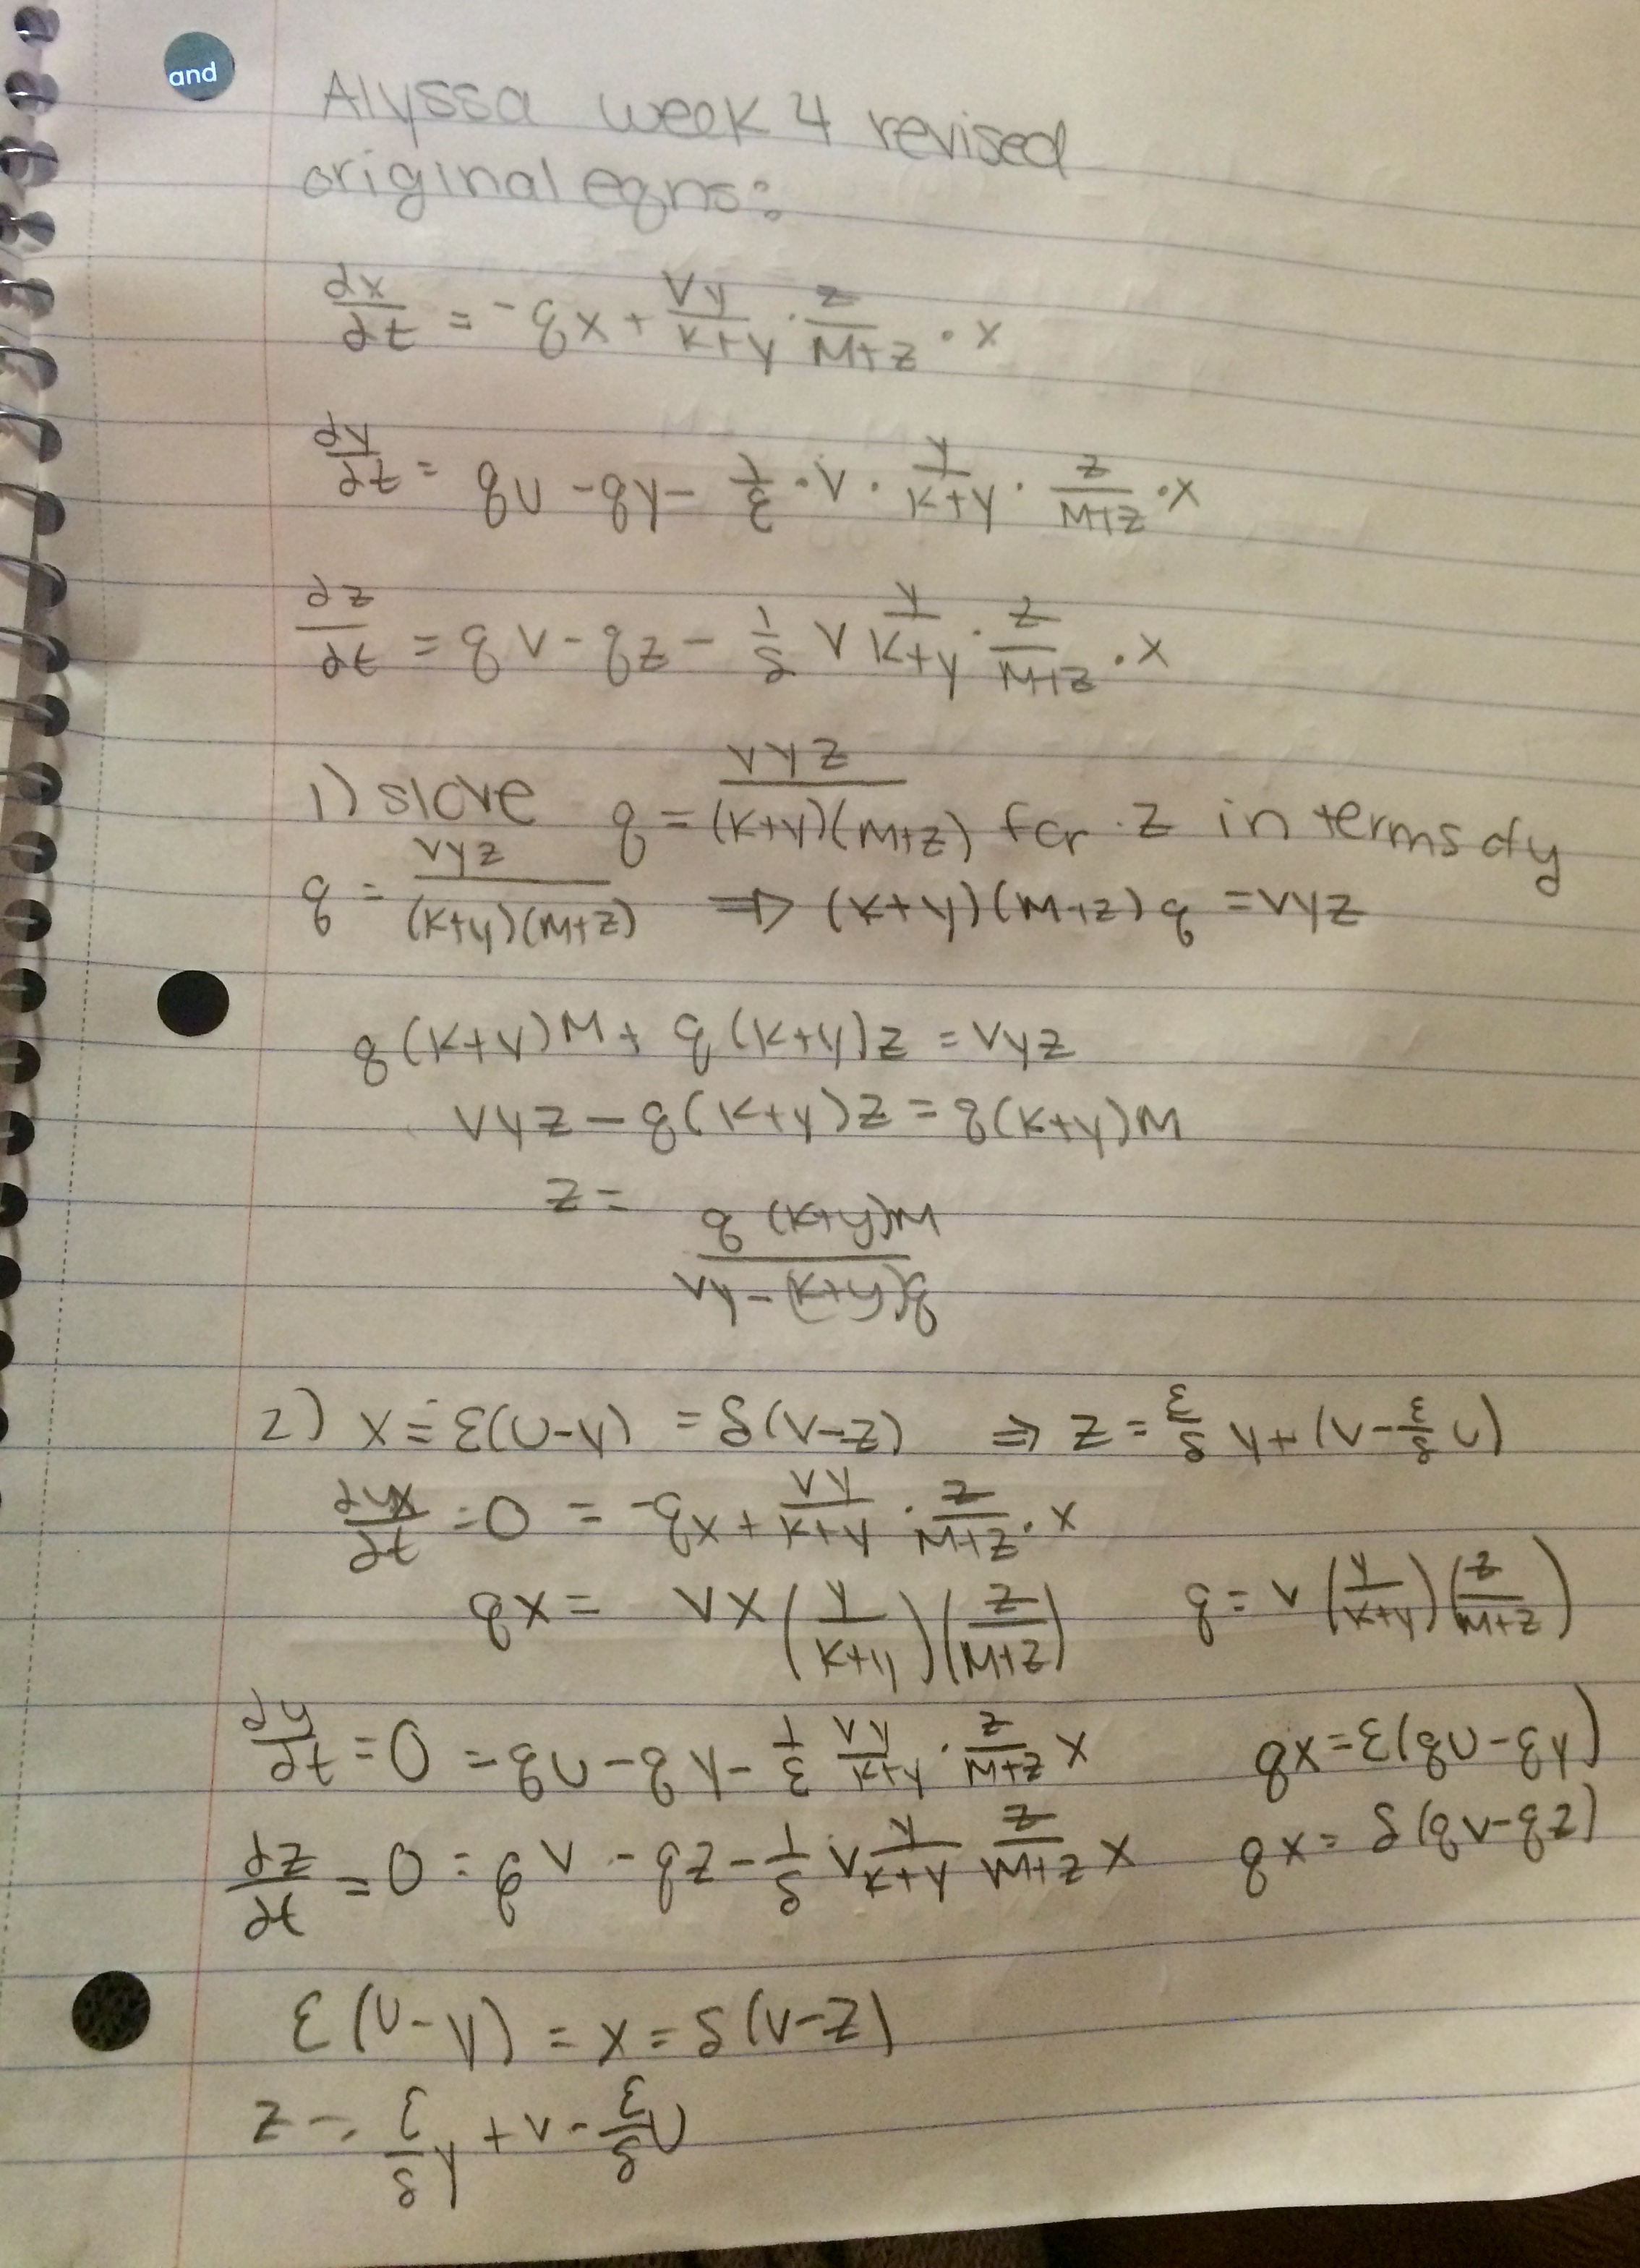 and
Alyssa week 4 revised
original eqns:
dx/dt = -qx + Vy/K+y · z/M+z · x
dy/dt = qu - qy - 1/ε · V · y/K+y · z/M+z · x
dz/dt = qv - qz - 1/δ V y/K+y · z/M+z · x
1) slove q = Vyz/(K+y)(M+z) for z in terms of y
q = Vyz/(K+y)(M+z) ⇒ (K+y)(M+z)q = Vyz
q(K+y)M + q(K+y)z = Vyz
Vyz - q(K+y)z = q(K+y)M
z = q(K+y)M/Vy-(K+y)q
2) x = ε(u-y) = δ(v-z) ⇒ z = ε/δ y + (v - ε/δ u)
dx/dt = 0 = -qx + Vy/K+y · z/M+z · x
qx = Vx(y/K+y)(z/M+z) q = V(y/K+y)(z/M+z)
dy/dt = 0 = qu - qy - 1/ε Vy/K+y · z/M+z x qx = ε(qu-qy)
dz/dt = 0 = qv - qz - 1/δ V y/K+y z/M+z x qx = δ(qv-qz)
ε(u-y) = x = δ(v-z)
z = ε/δ y + v - ε/δ u